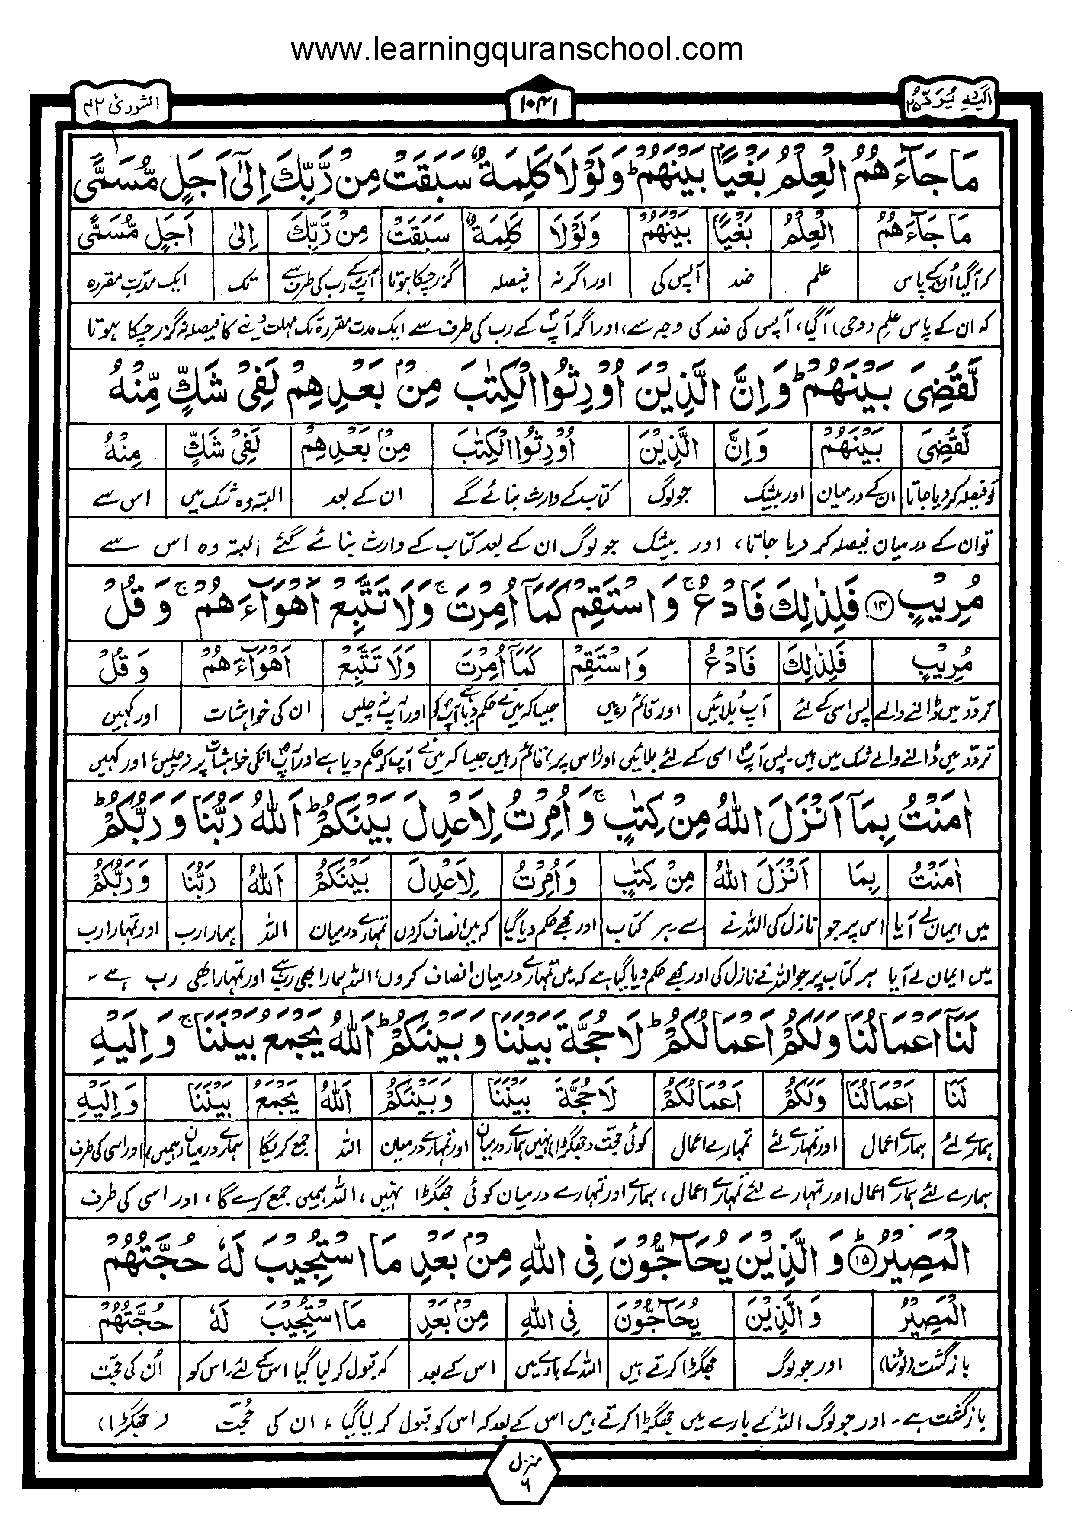 www.learningquranschool.com
الشورٰی ۴۲
۱۰۴۱
الیه یرد ۲۵
مَا جَآءَهُمُ الْعِلْمُ بَغْيًۢا بَيْنَهُمْ ؕ وَلَوْلَا كَلِمَةٌ سَبَقَتْ مِنْ رَّبِّكَ اِلٰٓى اَجَلٍ مُّسَمًّى
مَا جَآءَهُمُ الْعِلْمُ بَغْيًۢا بَيْنَهُمْ وَلَوْلَا كَلِمَةٌ سَبَقَتْ مِنْ رَّبِّكَ اِلٰٓى اَجَلٍ مُّسَمًّى
کہ آگیا اُن کے پاس علم ضد آپس کی اور اگر نہ فیصلہ گزر چکا ہوتا آپ کے رب کی طرف سے تک ایک مدتِ مقررہ
کہ ان کے پاس علم (وحی) آگیا، آپس کی ضد کی وجہ سے، اور اگر آپؐ کے رب کی طرف سے ایک مدت مقررہ تک مہلت دینے کا فیصلہ نہ گزر چکا ہوتا
لَّقُضِىَ بَيْنَهُمْ ؕ وَاِنَّ الَّذِيْنَ اُوْرِثُوا الْكِتٰبَ مِنْۢ بَعْدِهِمْ لَفِىْ شَكٍّ مِّنْهُ
لَّقُضِىَ بَيْنَهُمْ وَاِنَّ الَّذِيْنَ اُوْرِثُوا الْكِتٰبَ مِنْۢ بَعْدِهِمْ لَفِىْ شَكٍّ مِنْهُ
تو فیصلہ کر دیا جاتا ان کے درمیان اور بیشک جو لوگ کتاب کے وارث بنائے گئے ان کے بعد البتہ وہ شک میں اس سے
تو ان کے درمیان فیصلہ کر دیا جاتا، اور بیشک جو لوگ ان کے بعد کتاب کے وارث بنائے گئے البتہ وہ اس سے
مُرِيْبٍ ۱۴ فَلِذٰلِكَ فَادْعُ ۚ وَاسْتَقِمْ كَمَاۤ اُمِرْتَ ۚ وَلَا تَتَّبِعْ اَهْوَآءَهُمْ ۚ وَقُلْ
مُرِيْبٍ فَلِذٰلِكَ فَادْعُ وَاسْتَقِمْ كَمَاۤ اُمِرْتَ وَلَا تَتَّبِعْ اَهْوَآءَهُمْ وَقُلْ
تردد میں ڈالنے والے پس اسی کے لئے آپ بلائیں اور قائم رہیں جیسا کہ میں نے حکم دیا آپ کو اور آپ نہ چلیں ان کی خواہشات اور کہیں
تردد میں ڈالنے والے شک میں ہیں۔ پس آپؐ اسی کے لئے بلائیں اور اس پر قائم رہیں جیسا کہ میں نے آپ کو حکم دیا ہے اور آپؐ انکی خواہشات پر نہ چلیں، اور کہیں
اٰمَنْتُ بِمَاۤ اَنْزَلَ اللّٰهُ مِنْ كِتٰبٍ ۚ وَاُمِرْتُ لِاَعْدِلَ بَيْنَكُمْ ؕ اَللّٰهُ رَبُّنَا وَرَبُّكُمْ ؕ
اٰمَنْتُ بِمَا اَنْزَلَ اللّٰهُ مِنْ كِتٰبٍ وَاُمِرْتُ لِاَعْدِلَ بَيْنَكُمْ اَللّٰهُ رَبُّنَا وَرَبُّكُمْ
میں ایمان لے آیا اس پر جو نازل کی اللہ نے سے ہر کتاب اور مجھے حکم دیا گیا کہ میں انصاف کروں تمہارے درمیان اللہ ہمارا رب اور تمہارا رب
میں ایمان لے آیا ہر کتاب پر جو اللہ نے نازل کی اور مجھے حکم دیا گیا ہے کہ میں تمہارے درمیان انصاف کروں، اللہ ہمارا بھی رب ہے اور تمہارا بھی رب ہے۔
لَنَاۤ اَعْمَالُنَا وَلَكُمْ اَعْمَالُكُمْ ؕ لَا حُجَّةَ بَيْنَنَا وَبَيْنَكُمْ ؕ اَللّٰهُ يَجْمَعُ بَيْنَنَا ۚ وَاِلَيْهِ
لَنَا اَعْمَالُنَا وَلَكُمْ اَعْمَالُكُمْ لَا حُجَّةَ بَيْنَنَا وَبَيْنَكُمْ اَللّٰهُ يَجْمَعُ بَيْنَنَا وَاِلَيْهِ
ہمارے لئے ہمارے اعمال اور تمہارے لئے تمہارے اعمال کوئی حجت (جھگڑا) نہیں ہمارے درمیان اور تمہارے درمیان اللہ جمع کریگا ہمارے درمیان (ہمیں) اور اسی کی طرف
ہمارے لئے ہمارے اعمال اور تمہارے لئے تمہارے اعمال، ہمارے اور تمہارے درمیان کوئی جھگڑا نہیں، اللہ ہمیں جمع کرے گا، اور اسی کی طرف
الْمَصِيْرُ ۱۵ وَالَّذِيْنَ يُحَآجُّوْنَ فِى اللّٰهِ مِنْۢ بَعْدِ مَا اسْتُجِيْبَ لَهٗ حُجَّتُهُمْ
الْمَصِيْرُ وَالَّذِيْنَ يُحَآجُّوْنَ فِى اللّٰهِ مِنْۢ بَعْدِ مَا اسْتُجِيْبَ لَهٗ حُجَّتُهُمْ
بازگشت (لوٹنا) اور جو لوگ جھگڑا کرتے ہیں اللہ کے بارے میں اس کے بعد کہ قبول کر لیا گیا اس کے لئے، اس کو اُن کی حجت
بازگشت ہے۔ اور جو لوگ اللہ کے بارے میں جھگڑا کرتے ہیں اس کے بعد کہ اس کو قبول کر لیا گیا، ان کی حُجت (جھگڑا)
منزل ۶